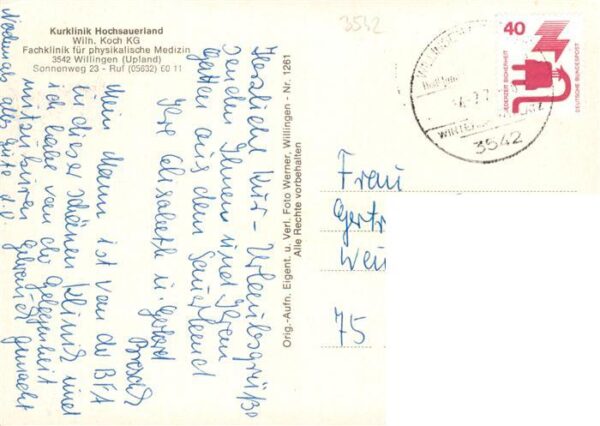 3542
Kurklinik Hochsauerland
Wilh. Koch KG
Fachklinik für physikalische Medizin
3542 Willingen (Upland)
Sonnenweg 23 - Ruf (05632) 60 11
Herzliche Kur-Urlaubsgrüße
senden Ihnen und Ihrem
Gatten aus dem Sauerland
Ihre Elisabeth u. Gerhard
Mein Mann ist von der BFA
in dieser schönen Klinik und
ich habe von der Gelegenheit
mitzufahren Gebrauch gemacht
Nochmals alles Gute d.O.
Orig.-Aufn. Eigent. u. Verl. Foto Werner, Willingen - Nr. 1261
Alle Rechte vorbehalten
40
JEDERZEIT SICHERHEIT
DEUTSCHE BUNDESPOST
WILLINGEN
3542
Frau
Gertr
75